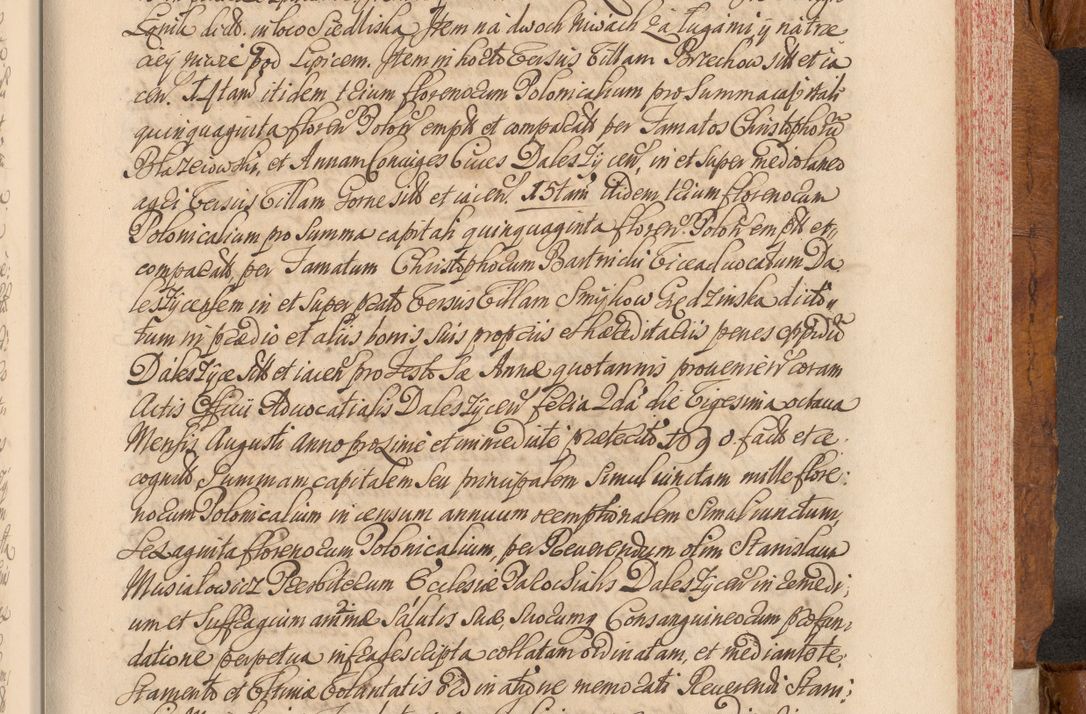 Lgnik dicto in loco Siedliska Item na dwoch niwach za ługami ÿ na trze
aeÿ niwie pod Lipicem. Item in horto versus Villam Brzechow sitt et ia
cen. 14tam itidem trium florenorum Polonicalium pro summa capitali
quinquaginta floren Polon empt et comparat per Famatos Christophorū
Błazeiowski, et Annam Coniuges Cives Daleszÿcen, in et super medio laneo
agri versus Villam Gorne sitt et iacen. 15tam itidem trium florenorum
Polonicalium pro summa capitali quinquaginta floren Polon empt et
comparat, per Famatum Christophorum Bartnicki Viceadvocatum Da
leszÿcensem in et super prato versus Villam Smÿkow Grędzinska dicto
tum in prædio et aliis bonis suis propriis et hæreditariis penes oppidū
Daleszÿce sitt et iacen pro Festo Sæ Annæ quotannis provenien coram
Actis Officii Advocatialis Daleszÿcen feria 2dā die Vigesima octava
Mensis Augusti anno proxime et immediate præterito 1690. fact et re
cognit, Summam capitalem seu principalem simul iunctam mille flore:
norum Polonicalium in censum annuum reemptionalem simul iunctum,
sexaginta florenorum Polonicalium, per Reverendum olim Stanislaum
Musialowicz Presbiterum Ecclesiæ Parochialis Daleszÿcen in remedi;
um et suffragium animæ salutis suæ, suorumq Consanguineorum præfun,
datione perpetua infrascripta collatam ordinatam, et mediante te,
stamento et ultimæ voluntatis ordinatione memorati Reverendi Stani;